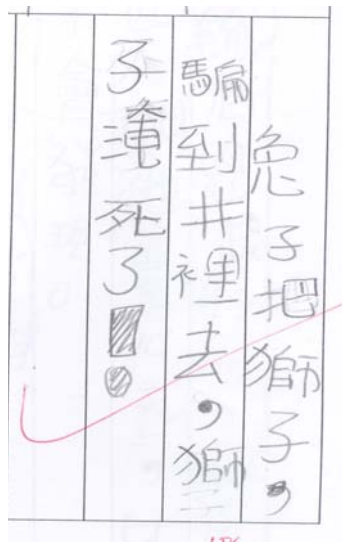 兔子把獅子，
騙到井裡去，獅
子淹死了！